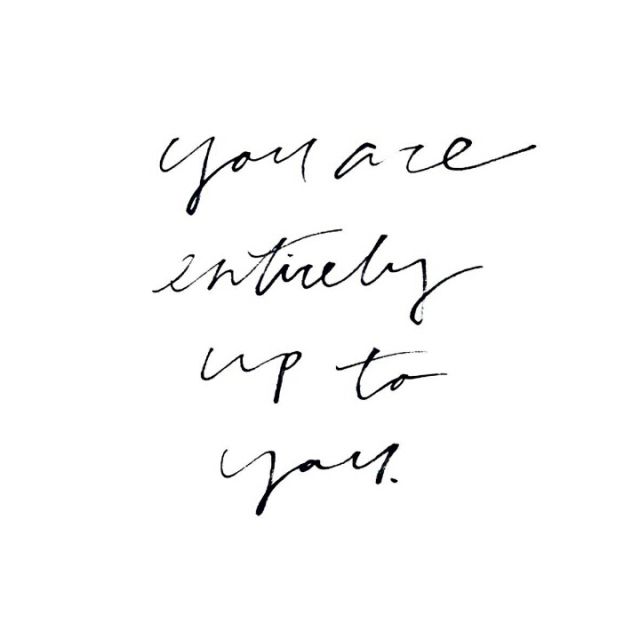 you are
entirely
up to
you.